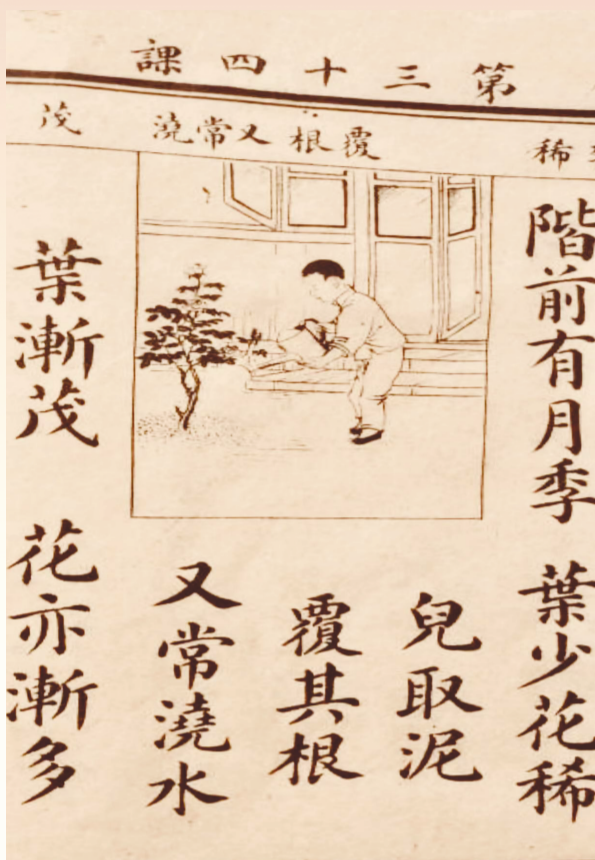 第三十四課
稀
覆根
又常澆
茂
階前有月季 葉少花稀
兒取泥
覆其根
又常澆水
葉漸茂 花亦漸多